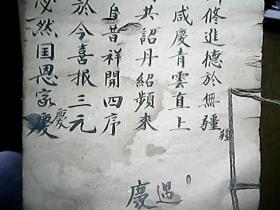 修進德於無疆
疆
咸慶青雲直上
共詔丹紹頻來
自昔祥開四序
於今喜报三元
必然国恩家慶
慶
遇慶